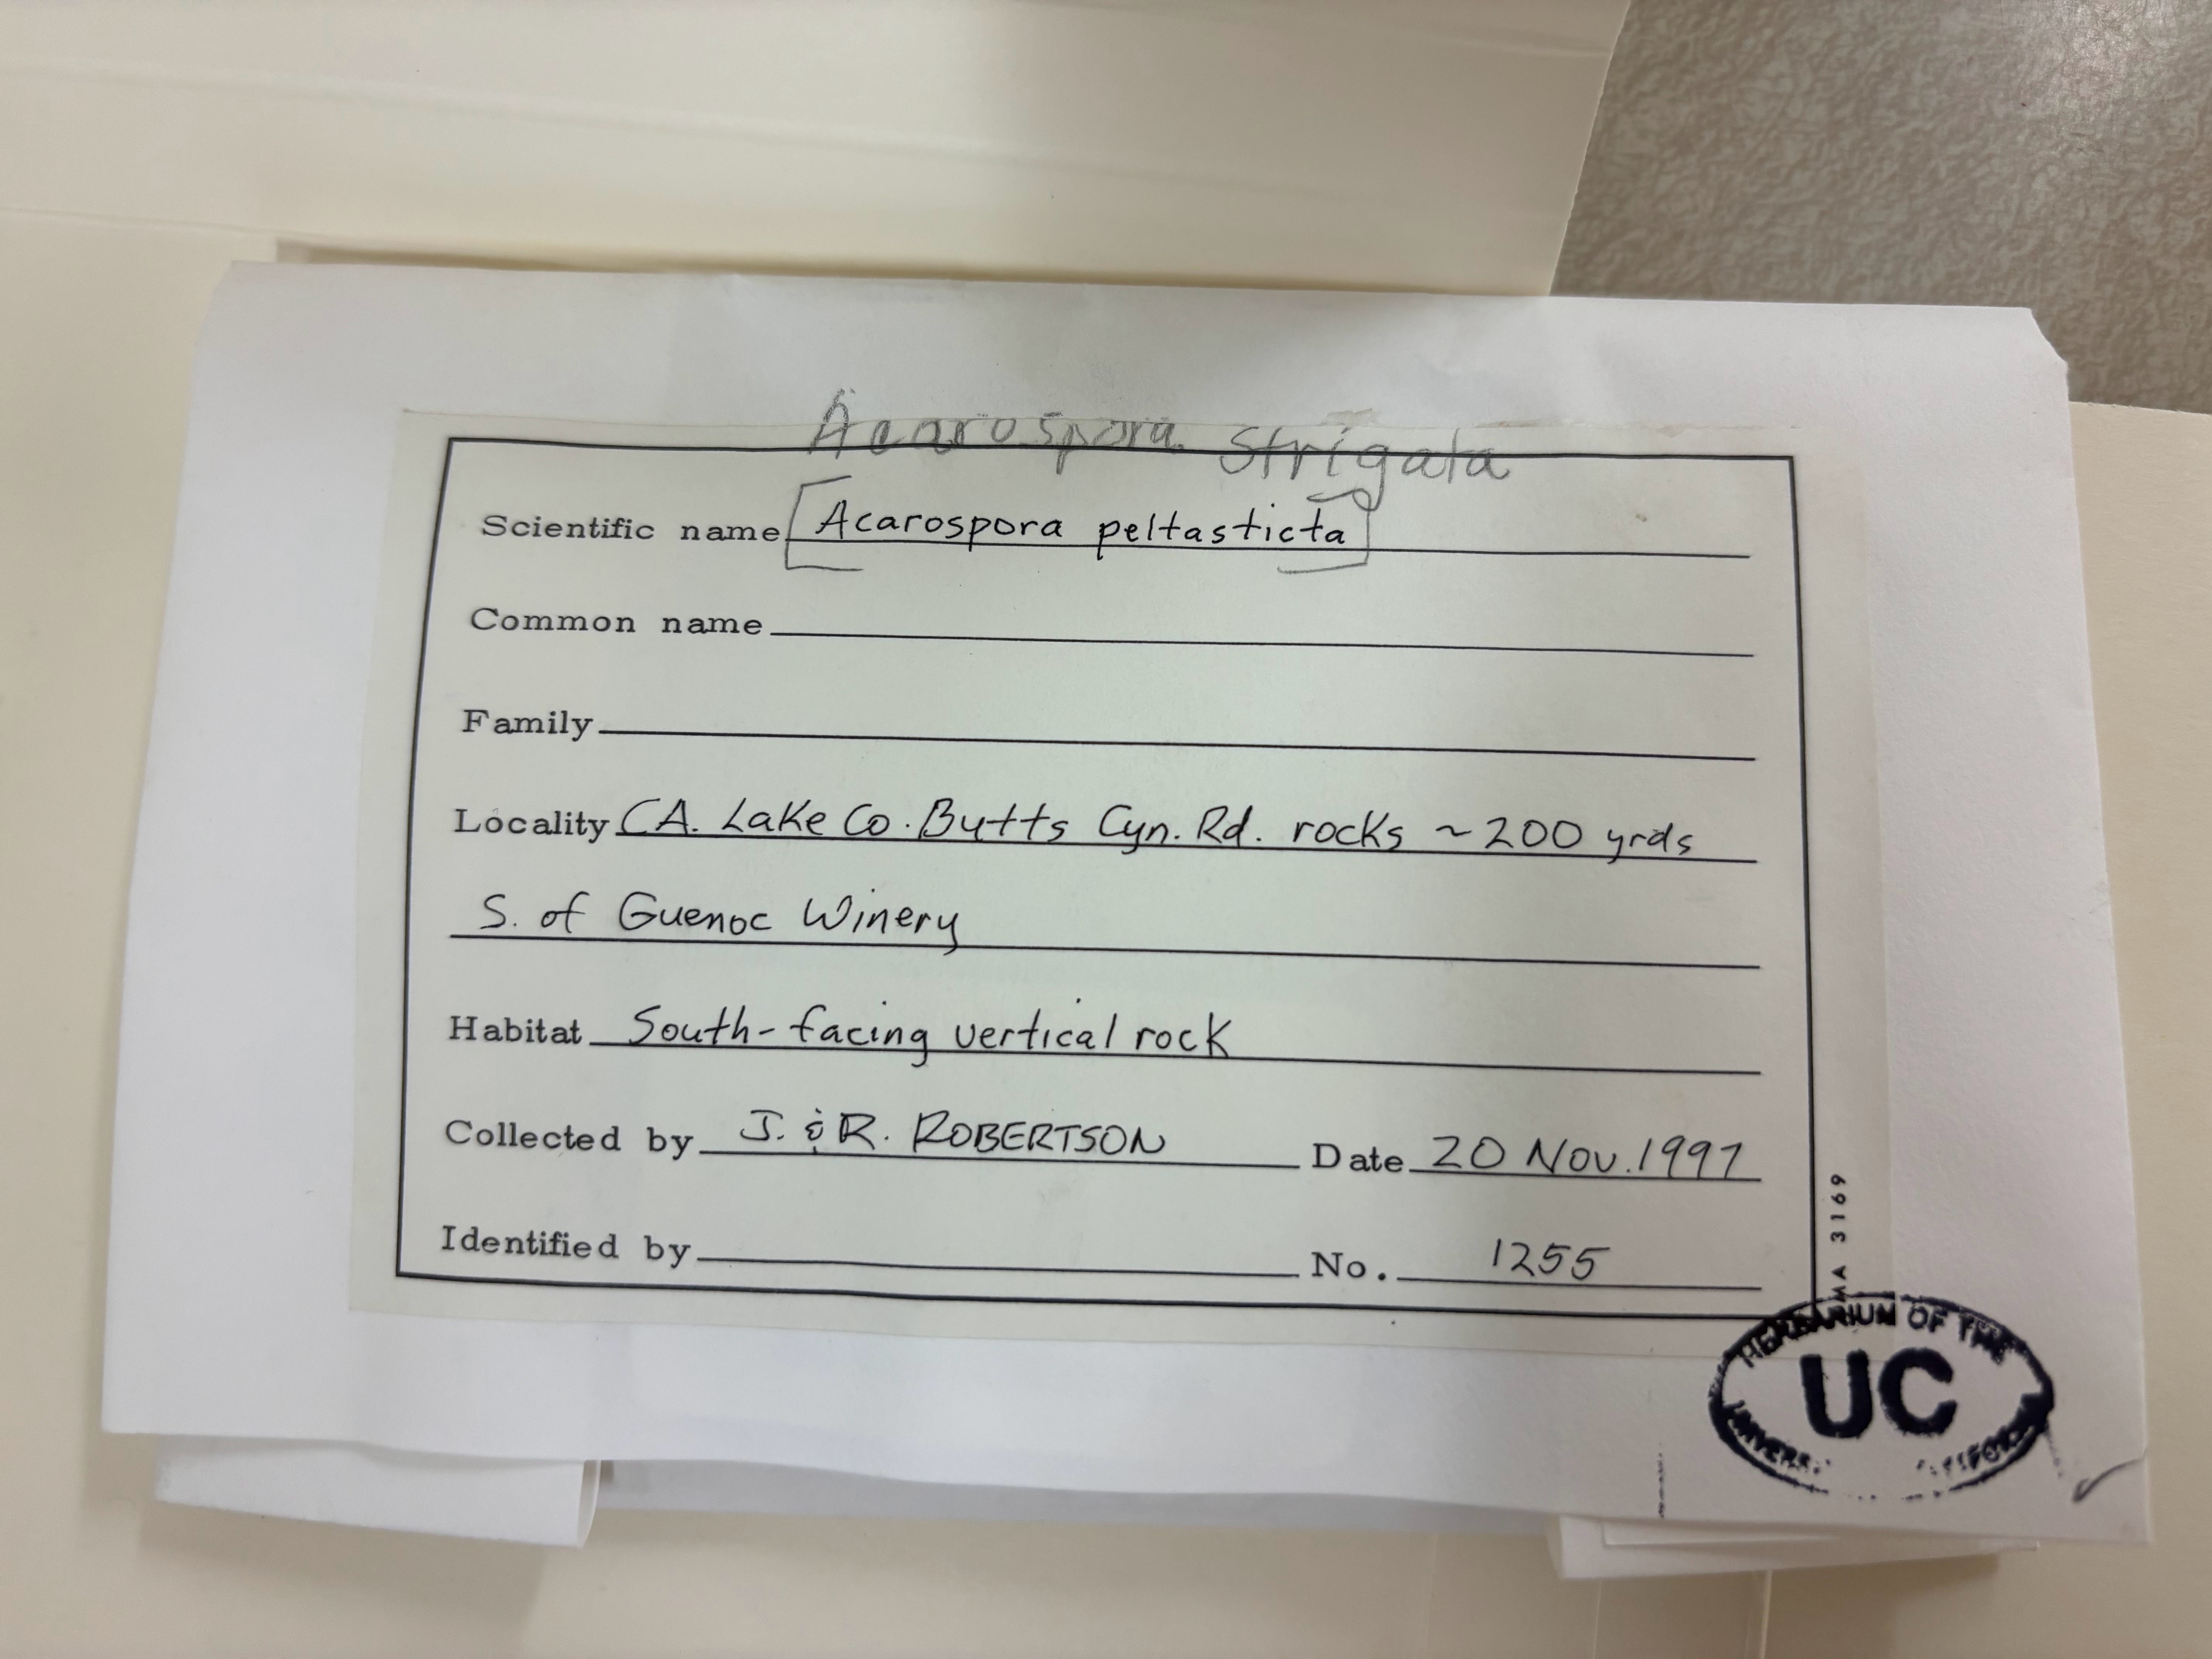 Acarospora strigata
Scientific name [Acarospora peltasticta]
Common name
Family
Locality CA. Lake Co. Butts Cyn. Rd. rocks ~200 yrds
S. of Guenoc Winery
Habitat South-facing vertical rock
Collected by J. & R. ROBERTSON Date 20 Nov. 1997
Identified by No. 1255
MA 3169
HERBARIUM OF THE
UC